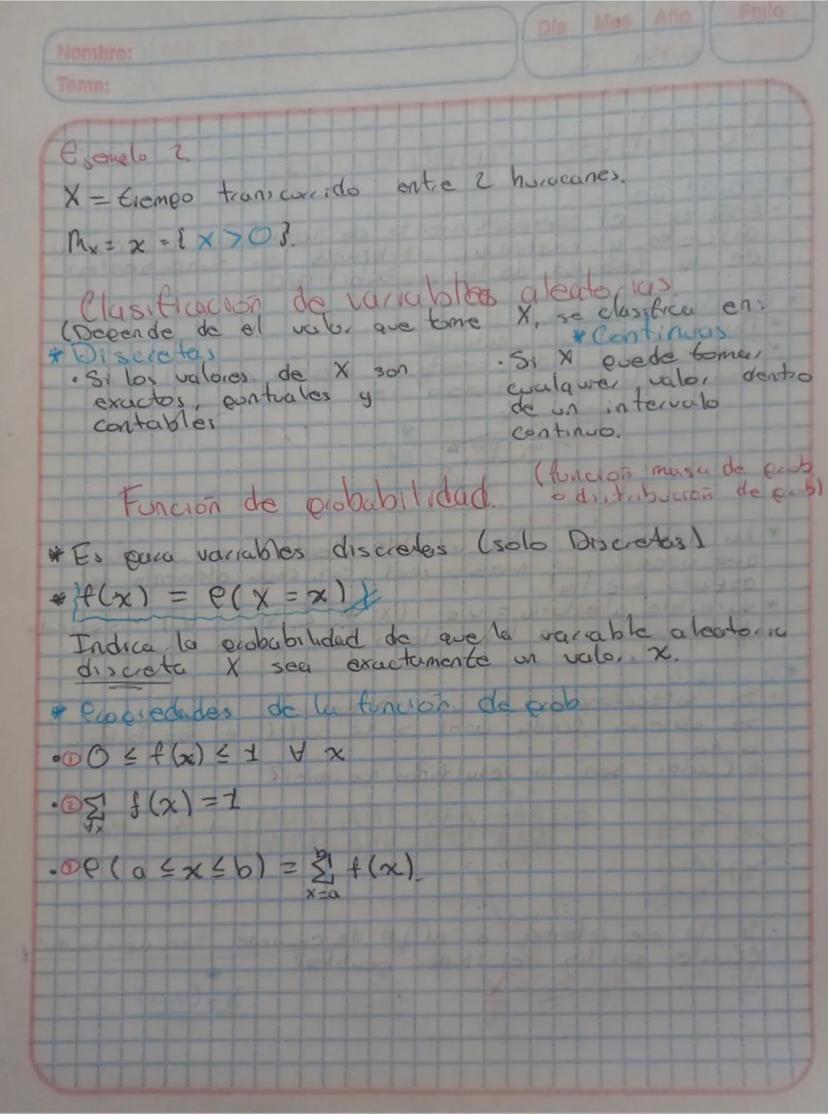 Día Mes Año Folio
Nombre:
Tema:
Ejemplo 2
X = tiempo transcurrido entre 2 huracanes.
Rx = x = { x > 0 }.
Clasificación de variables aleatorias
(Depende de el valor que tome X, se clasifica en:
* Discretas
• Si los valores de X son
exactos, puntuales y
contables
* Continuas
• Si X puede tomar
cualquier valor dentro
de un intervalo
continuo.
Función de probabilidad. (función masa de prob
o distribución de prob)
* Es para variables discretas (solo Discretas)
* f(x) = P(X = x)
Indica la probabilidad de que la variable aleatoria
discreta X sea exactamente un valor x.
* Propiedades de la función de prob
• ① 0 ≤ f(x) ≤ 1 ∀ x
• ② ∑ f(x) = 1
∀x
• ③ P(a ≤ x ≤ b) = ∑ᵇ f(x).
x=a